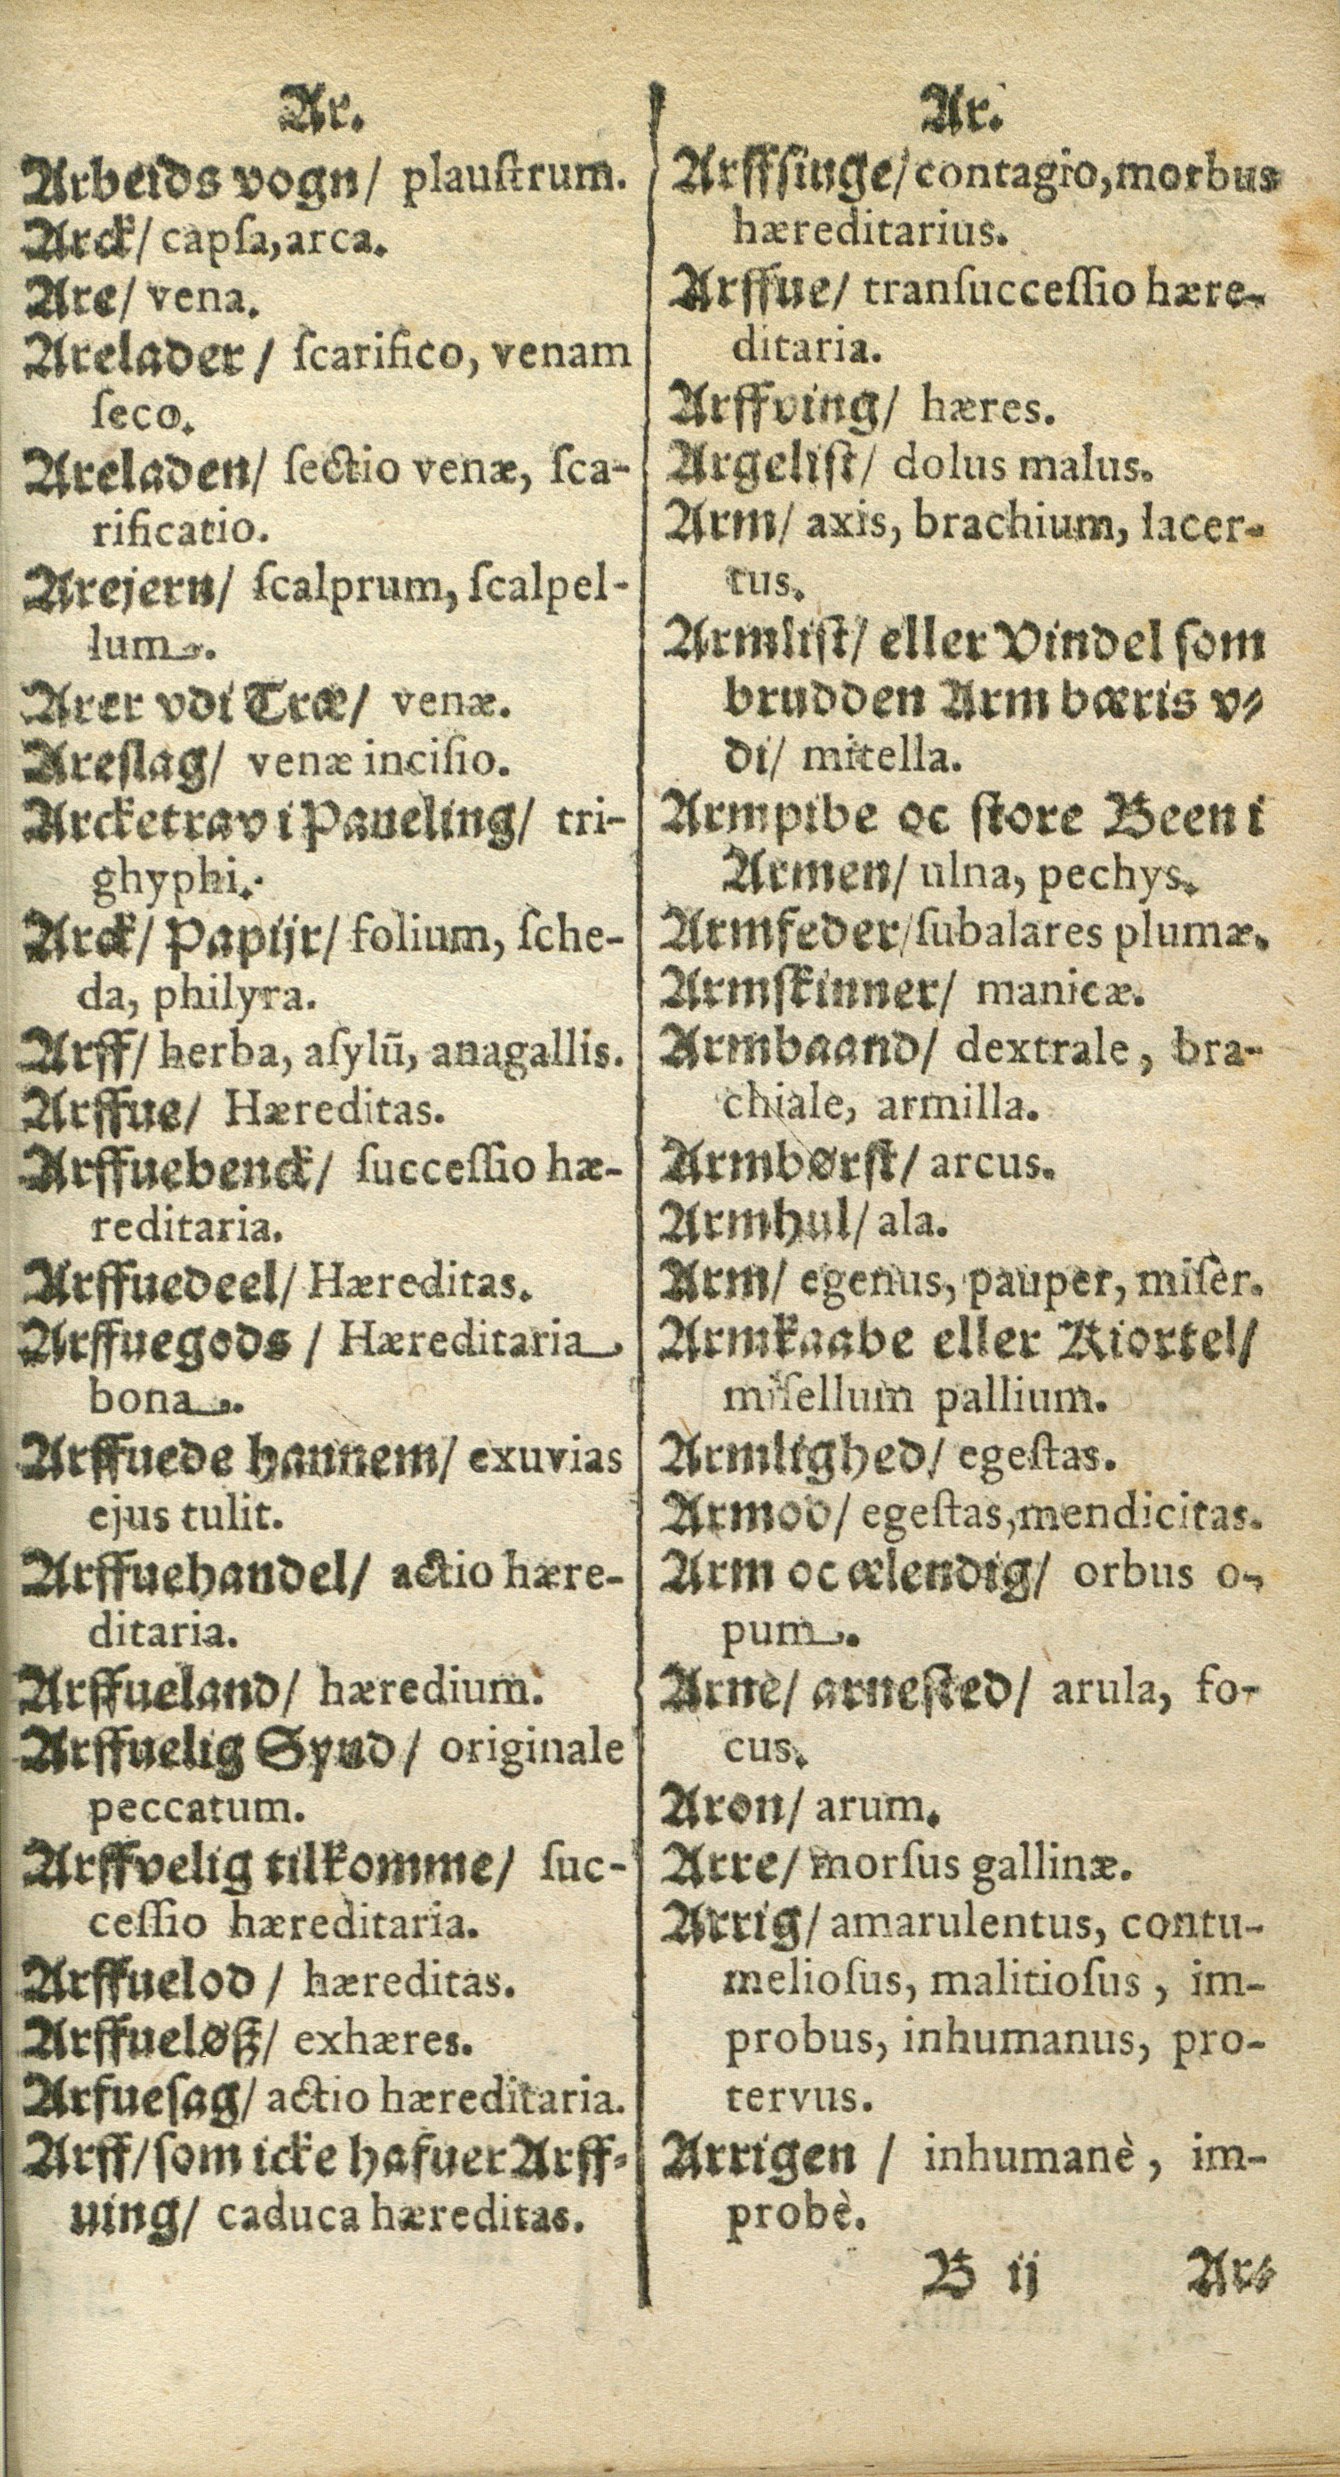 Ar.
Arbeids vogn/ plauſtrum.
Arck/ capſa, arca.
Are/ vena.
Arelader/ ſcarifico, venam
ſeco.
Areladen/ ſectio venæ, ſca-
rificatio.
Arejern/ ſcalprum, ſcalpel-
lum.
Arer vdi Træ/ venæ.
Areſlag/ venæ inciſio.
Arcketrav i Paueling/ tri-
ghyphi.
Arck/ Papijr/ folium, ſche-
da, philyra.
Arff/ herba, aſylū, anagallis.
Arffue/ Hæreditas.
Arffuebenck/ ſucceſſio hæ-
reditaria.
Arffuedeel/ Hæreditas.
Arffuegods/ Hæreditaria
bona.
Arffuede hannem/ exuvias
ejus tulit.
Arffuehandel/ actio hære-
ditaria.
Arffueland/ hæredium.
Arffuelig Synd/ originale
peccatum.
Arffvelig tilkomme/ ſuc-
ceſſio hæreditaria.
Arffuelod/ hæreditas.
Arffueløß/ exhæres.
Arfueſag/ actio hæreditaria.
Arff/ ſom icke hafuer Arff-
uing/ caduca hæreditas.
Ar.
Arffſinge/ contagio, morbus
hæreditarius.
Arffue/ tranſucceſſio hære-
ditaria.
Arffving/ hæres.
Argeliſt/ dolus malus.
Arm/ axis, brachium, lacer-
tus.
Armliſt/ eller Vindel ſom
brudden Arm bæris v-
di/ mitella.
Armpibe oc ſtore Been i
Armen/ ulna, pechys.
Armfeder/ ſubalares plumæ.
Armſkinner/ manicæ.
Armbaand/ dextrale, bra-
chiale, armilla.
Armbørſt/ arcus.
Armhul/ ala.
Arm/ egenus, pauper, miſer.
Armkaabe eller Kiortel/
miſellum pallium.
Armlighed/ egeſtas.
Armod/ egeſtas, mendicitas.
Arm oc ælendig/ orbus o-
pum.
Arne/ arneſted/ arula, fo-
cus.
Aron/ arum.
Arre/ morſus gallinæ.
Arrig/ amarulentus, contu-
melioſus, malitioſus, im-
probus, inhumanus, pro-
tervus.
Arrigen/ inhumanè, im-
probè.
B ij Ar-